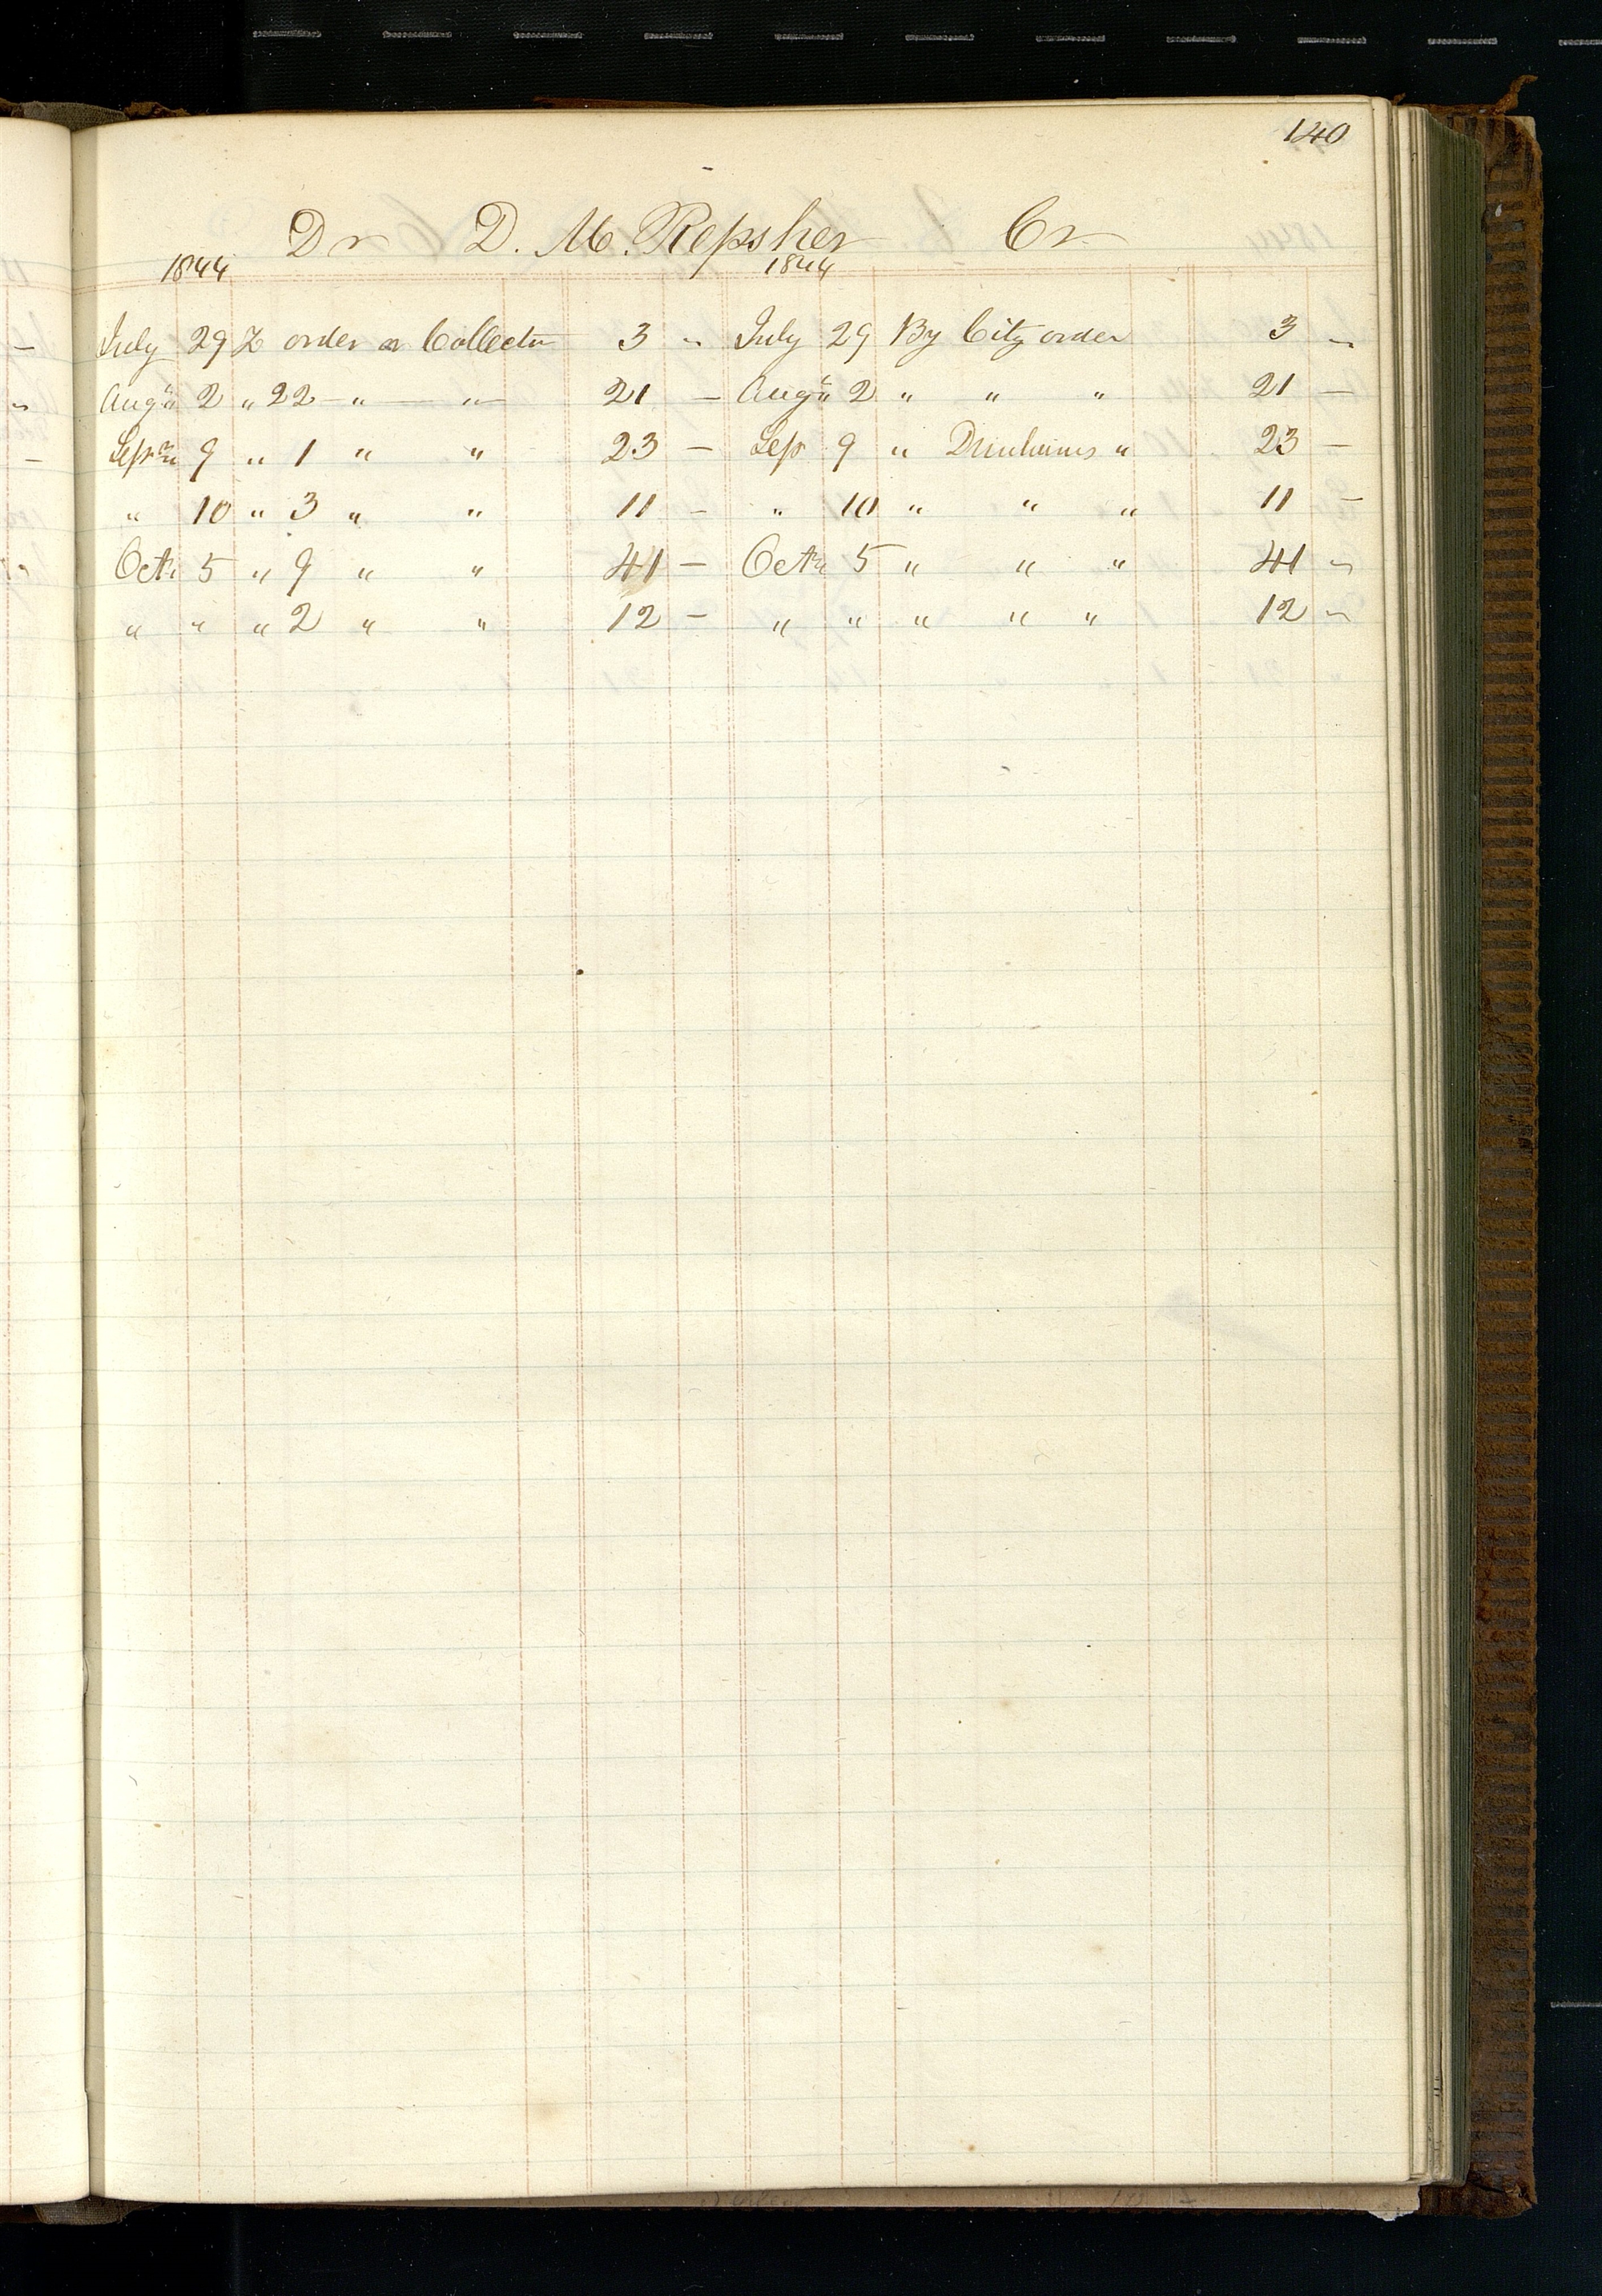 140
Dr D. M. Repsher Cr
1844 1844
July 29 order on Collector 3 " July 29 By City order 3 "
Aug " 2 " 22 " " 21 — Aug " 2 " " " 21 —
Sepr " 9 " 1 " " 23 — Sep 9 " " 23 —
" 10 " 3 " " 11 — " 10 " " " 11 —
Octr 5 " 9 " " 41 — Octr 5 " " " 41 "
" " " 2 " " 12 — " " " " " 12 "